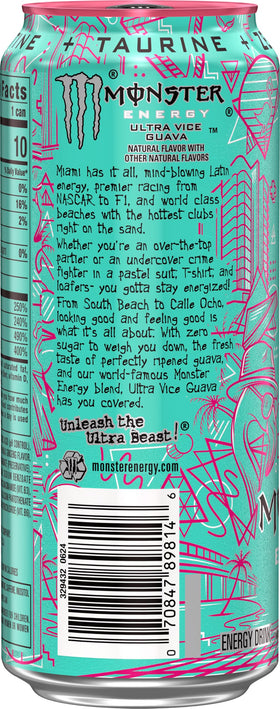 + TAURINE +
MONSTER
ENERGY
ULTRA VICE
GUAVA™
NATURAL FLAVOR WITH
OTHER NATURAL FLAVORS
Miami has it all, mind-blowing Latin
energy, premier racing from
NASCAR to F1, and world class
beaches with the hottest clubs
right on the sand.
Whether you're an over-the-top
partier or an undercover crime
fighter in a pastel suit, T-shirt, and
loafers- you gotta stay energized!
From South Beach to Calle Ocho,
looking good and feeling good is
what it's all about. With zero
sugar to weigh you down, the fresh
taste of perfectly ripened guava,
and our world-famous Monster
Energy blend, Ultra Vice Guava
has you covered.
Unleash the
Ultra Beast!®
monsterenergy.com
329432 0624
0 70847 89814 6
Facts
1 can
10
% Daily Value*
0%
16%
2%
0%
250%
240%
490%
400%
ENERGY DRINK